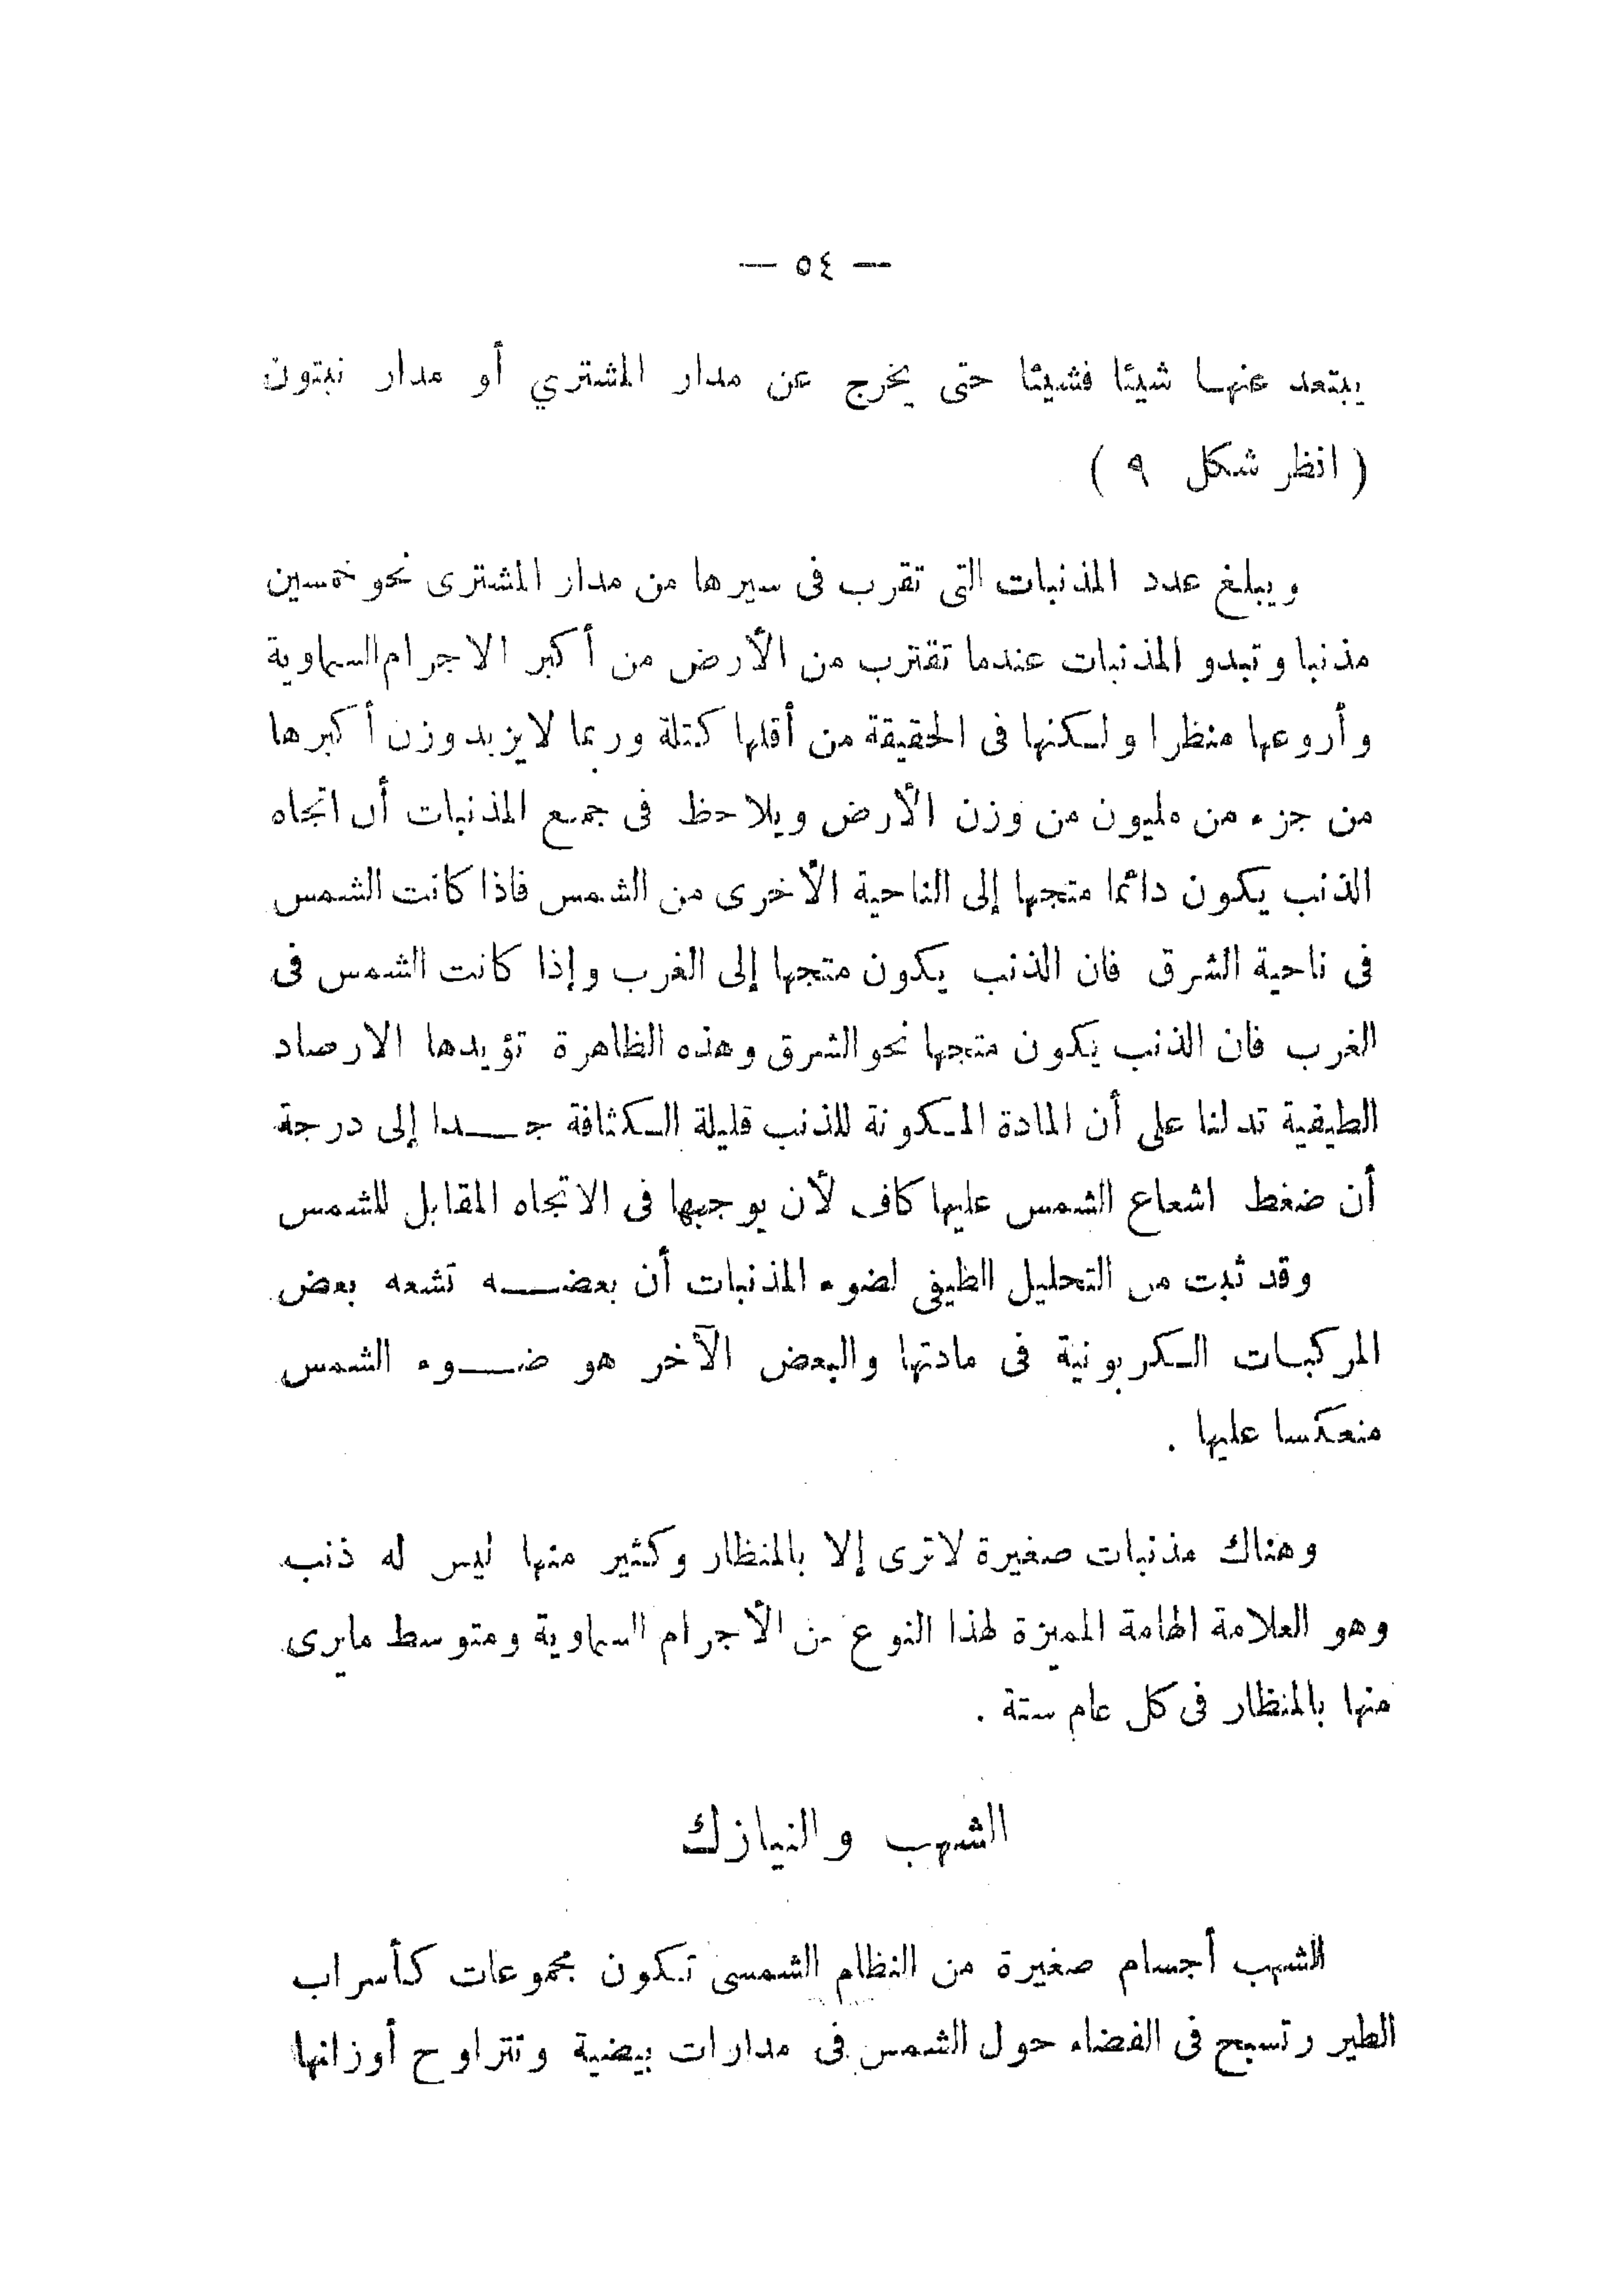 — ٥٤ —
يبتعد عنها شيئا فشيئا حتى يخرج عن مدار المشتري أو مدار نبتون
( انظر شكل ٩ )
ويبلغ عدد المذنبات التى تقرب فى سيرها من مدار المشترى نحو خمسين
مذنبا وتبدو المذنبات عندما تقترب من الأرض من أكبر الاجرام السماوية
وأروعها منظرا ولكنها فى الحقيقة من أقلها كتلة وربما لا يزيد وزن أكبرها
من جزء من مليون من وزن الأرض ويلاحظ فى جميع المذنبات أن اتجاه
الذنب يكون دائما متجها إلى الناحية الأخرى من الشمس فاذا كانت الشمس
فى ناحية الشرق فان الذنب يكون متجها إلى الغرب وإذا كانت الشمس فى
الغرب فان الذنب يكون متجها نحو الشرق وهذه الظاهرة تؤيدها الارصاد
الطيفية تدلنا على أن المادة المكونة للذنب قليلة الكثافة جدا إلى درجة
أن ضغط اشعاع الشمس عليها كاف لأن يوجهها فى الاتجاه المقابل للشمس
وقد ثبت من التحليل الطيفى لضوء المذنبات أن بعضه تشعه بعض
المركبات الكربونية فى مادتها والبعض الآخر هو ضوء الشمس
منعكسا عليها .
وهناك مذنبات صغيرة لا ترى إلا بالمنظار وكثير منها ليس له ذنب
وهو العلامة الهامة المميزة لهذا النوع من الأجرام السماوية ومتوسط مايرى
منها بالمنظار فى كل عام ستة .
الشهب والنيازك
الشهب أجسام صغيرة من النظام الشمسى تكون مجموعات كأسراب
الطير وتسبح فى الفضاء حول الشمس فى مدارات بيضية وتتراوح أوزانها